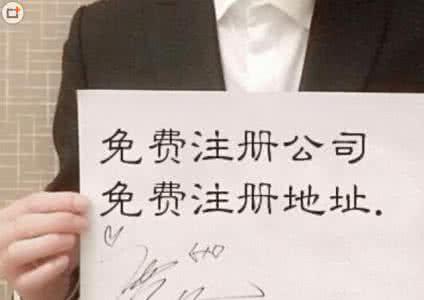 免费注册公司
免费注册地址.